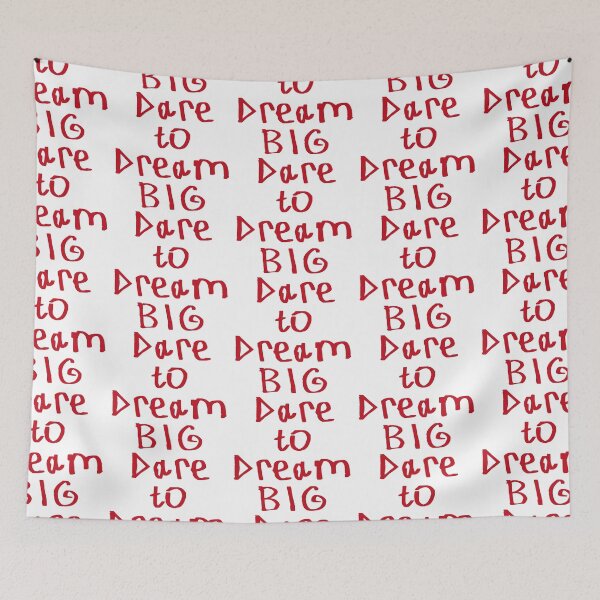 to
ream
BIG
are
to
ream
BIG
are
to
ream
BIG
are
to
ream
BIG
BIG
Dare
to
Dream
BIG
Dare
to
Dream
BIG
Dare
to
Dream
BIG
Dare
to
Dream
to
Dream
BIG
Dare
to
Dream
BIG
Dare
to
Dream
BIG
Dare
to
Dream
BIG
BIG
Dare
to
Dream
BIG
Dare
to
Dream
BIG
Dare
to
Dream
BIG
Dare
to
Dream
to
Dream
BIG
Dare
to
Dream
BIG
Dare
to
Dream
BIG
Dare
to
Dream
BIG